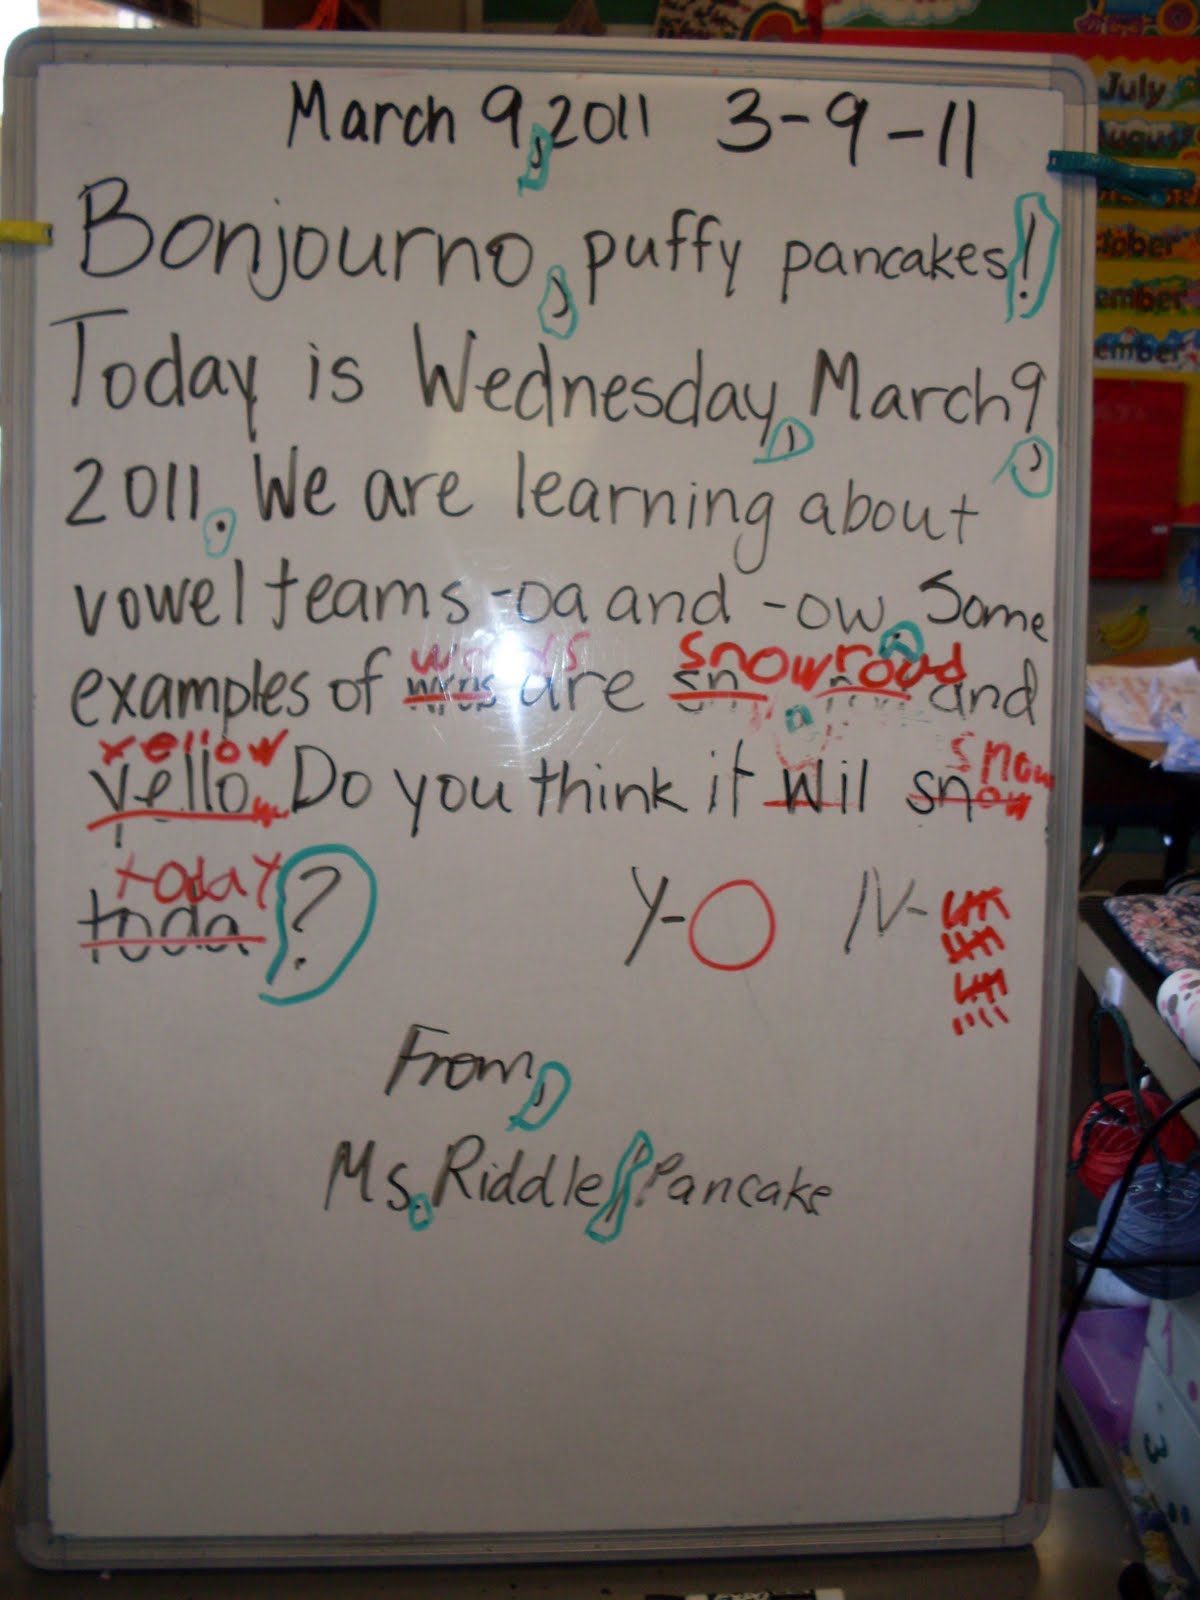 July
August
ctober
ember
ember
March 9, 2011 3-9-11
Bonjourno, puffy pancakes!
Today is Wednesday, March 9,
2011. We are learning about
vowel teams -oa and -ow. Some
words snow road
examples of are sn and
yellow snow
yello Do you think it wil snow
today
toda?
Y- N-
From,
Ms. Riddle/Pancake
3